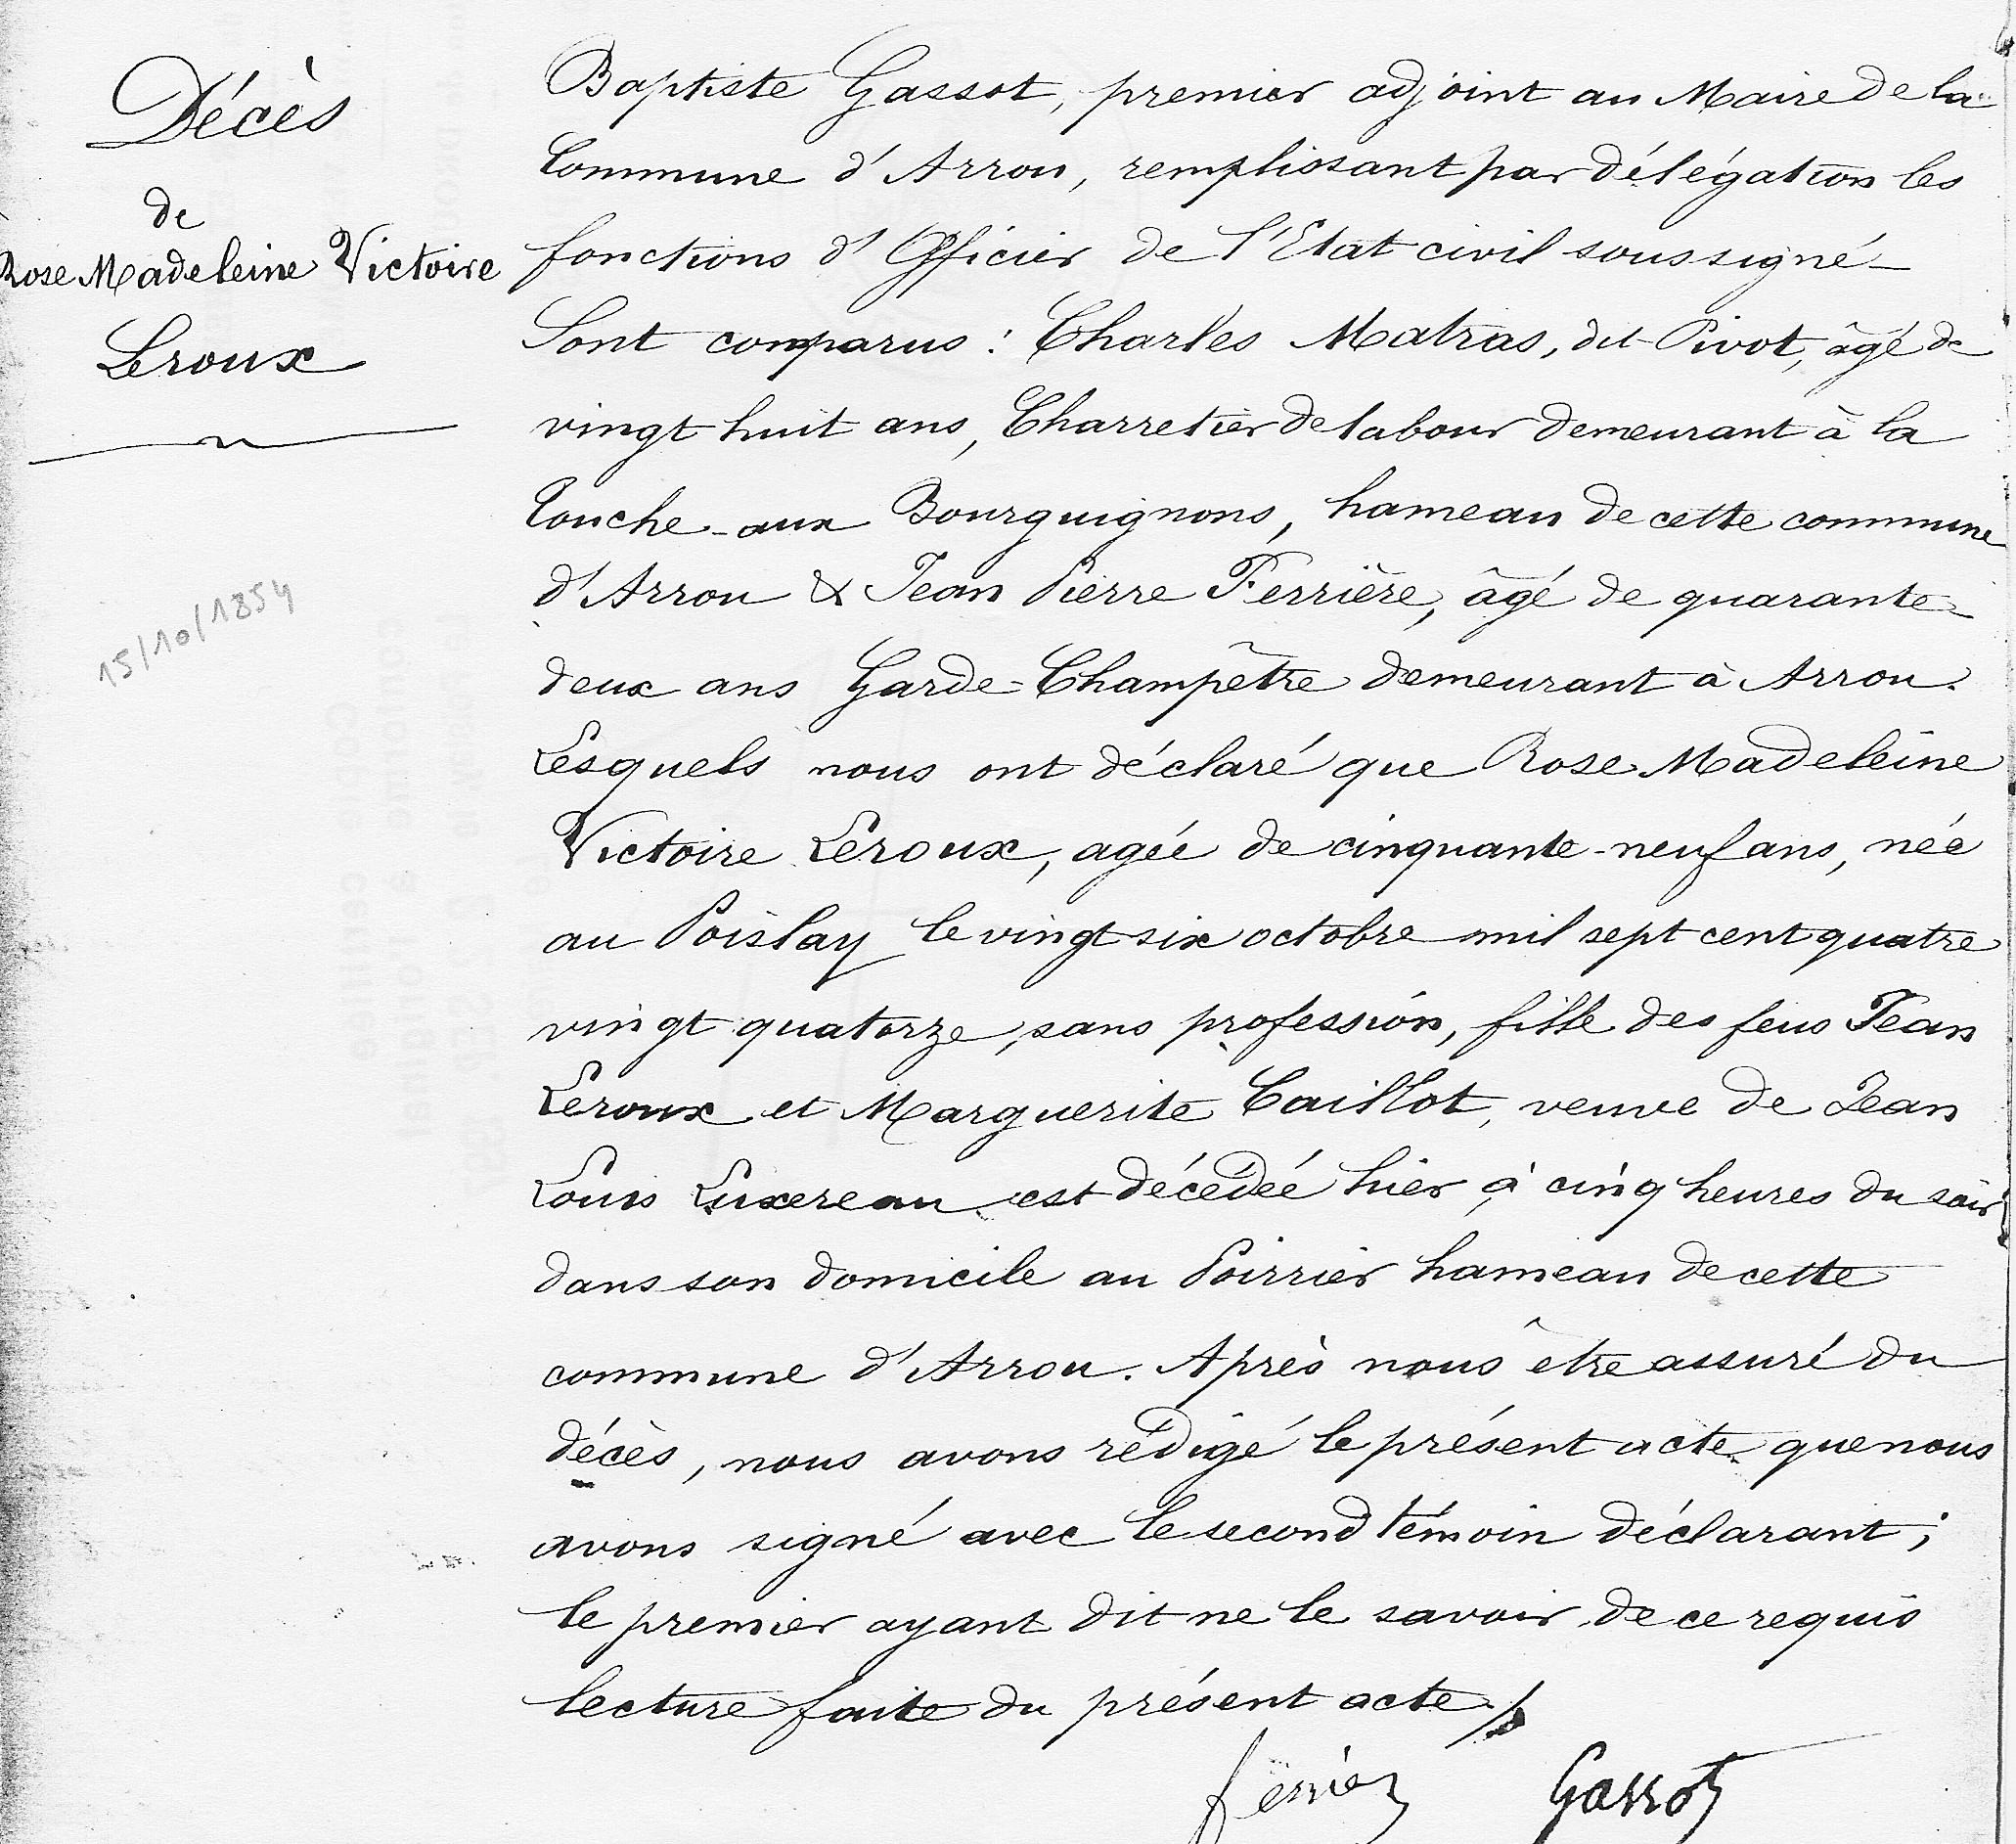 Décès
de
Rose Madeleine Victoire
Leroux
15/10/1854
Baptiste Gassot, premier adjoint au Maire de la
Commune d'Arrou, remplissant par délégation les
fonctions d'Officier de l'Etat civil soussigné_
Sont comparus : Charles Matras, dit Pivot, âgé de
vingt huit ans, Charretier de labour demeurant à la
Touche-aux Bourguignons, hameau de cette commune
d'Arrou & Jean Pierre Ferrière, âgé de quarante-
deux ans Garde-Champêtre demeurant à Arrou.
Lesquels nous ont déclaré que Rose Madeleine
Victoire Leroux, agée de cinquante-neuf ans, née
au Poislay le vingt six octobre mil sept cent quatre
vingt quatorze, sans profession, fille des feus Jean
Leroux et Marguerite Caillot, veuve de Jean
Louis Luxereau est décédée hier à cinq heures du soir
dans son domicile au Poirrier hameau de cette
commune d'Arrou. Après nous être assuré du
décès, nous avons rédigé le présent acte que nous
avons signé avec le second témoin déclarant ;
le premier ayant dit ne le savoir de ce requis
lecture faite du présent acte
Gassot